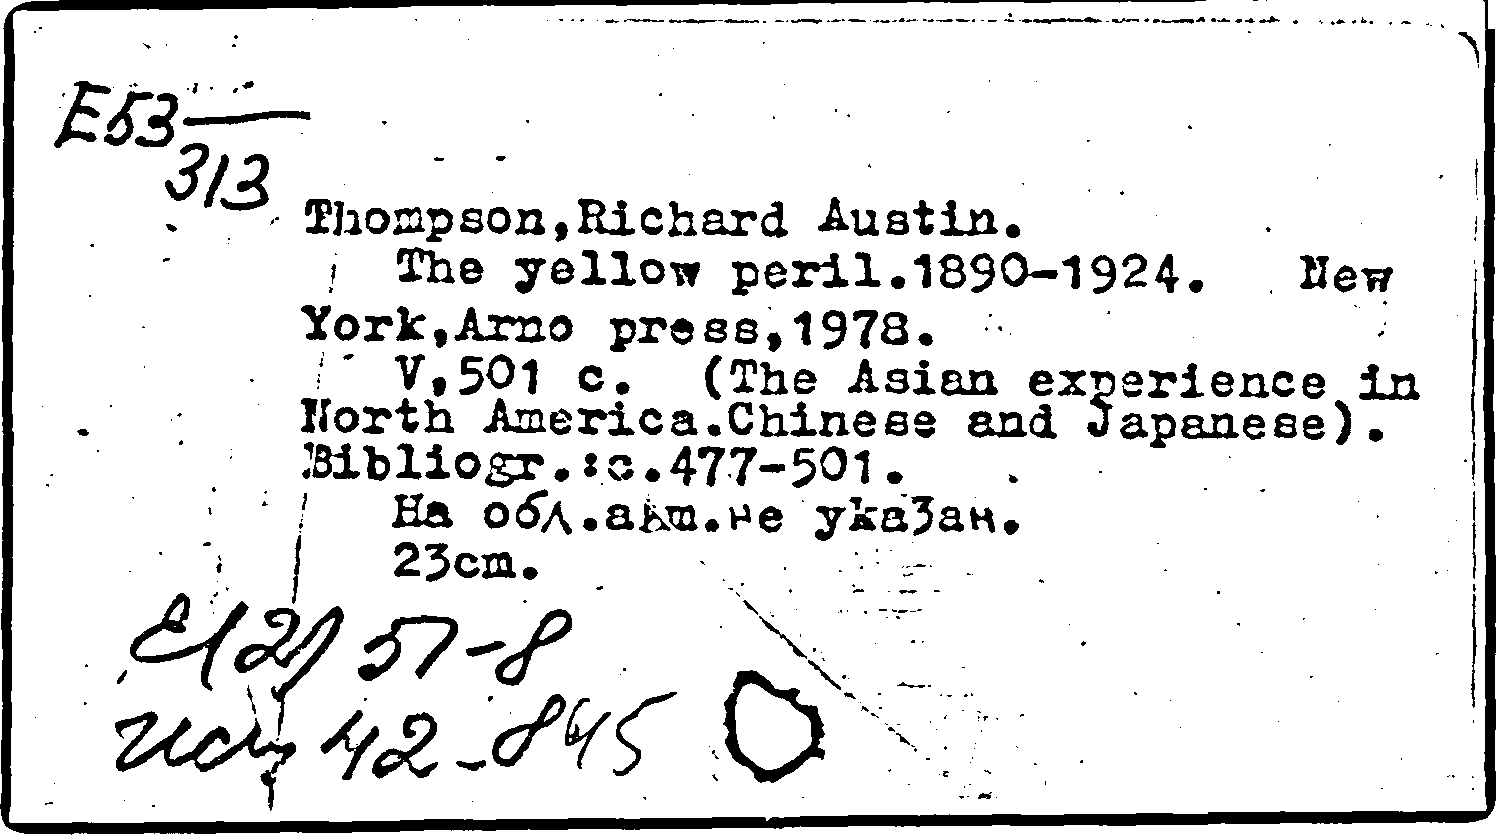 E53
313
Thompson,Richard Austin.
The yellow peril.1890-1924. New
York,Arno press,1978.
V,501 c. (The Asian experience in
North America.Chinese and Japanese).
Bibliogr.:c.477-501.
На обл.авт.не указан.
23cm.
51-8
42-845